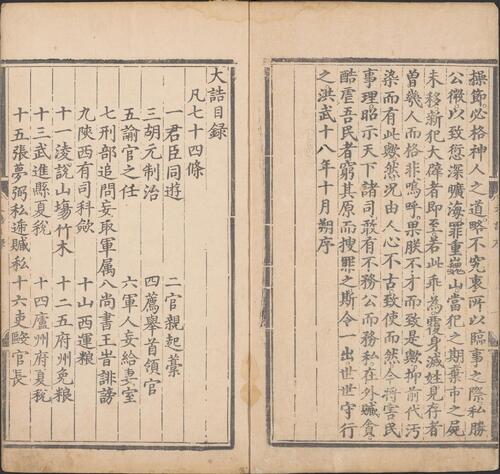 操節必格神人之道略不究衷所以臨事之際私勝
公微以致愆深曠海罪重巍山當犯之期棄市之屍
未移新犯大辟者即至若此乖為覆身滅姓見存者
曾幾人而格非嗚呼果朕不才而致是歟抑前代汚
染而有此歟然況由人心不古致使而然今將害民
事理昭示天下諸司敢有不務公而務私在外贓貪
酷虐吾民者窮其原而搜罪之斯令一出世世守行
之洪武十八年十月朔序
大誥目録
凡七十四條
一君臣同遊 二官親起藁
三胡元制治 四薦舉首領官
五諭官之任 六軍人妄給妻室
七刑部追問妄取軍属 八尚書王旹誹謗
九陝西有司科斂 十山西運粮
十一凌說山塲竹木 十二五府州免粮
十三武進縣夏稅 十四廬州府夏稅
十五張夢弼私遞贓私 十六吏毆官長